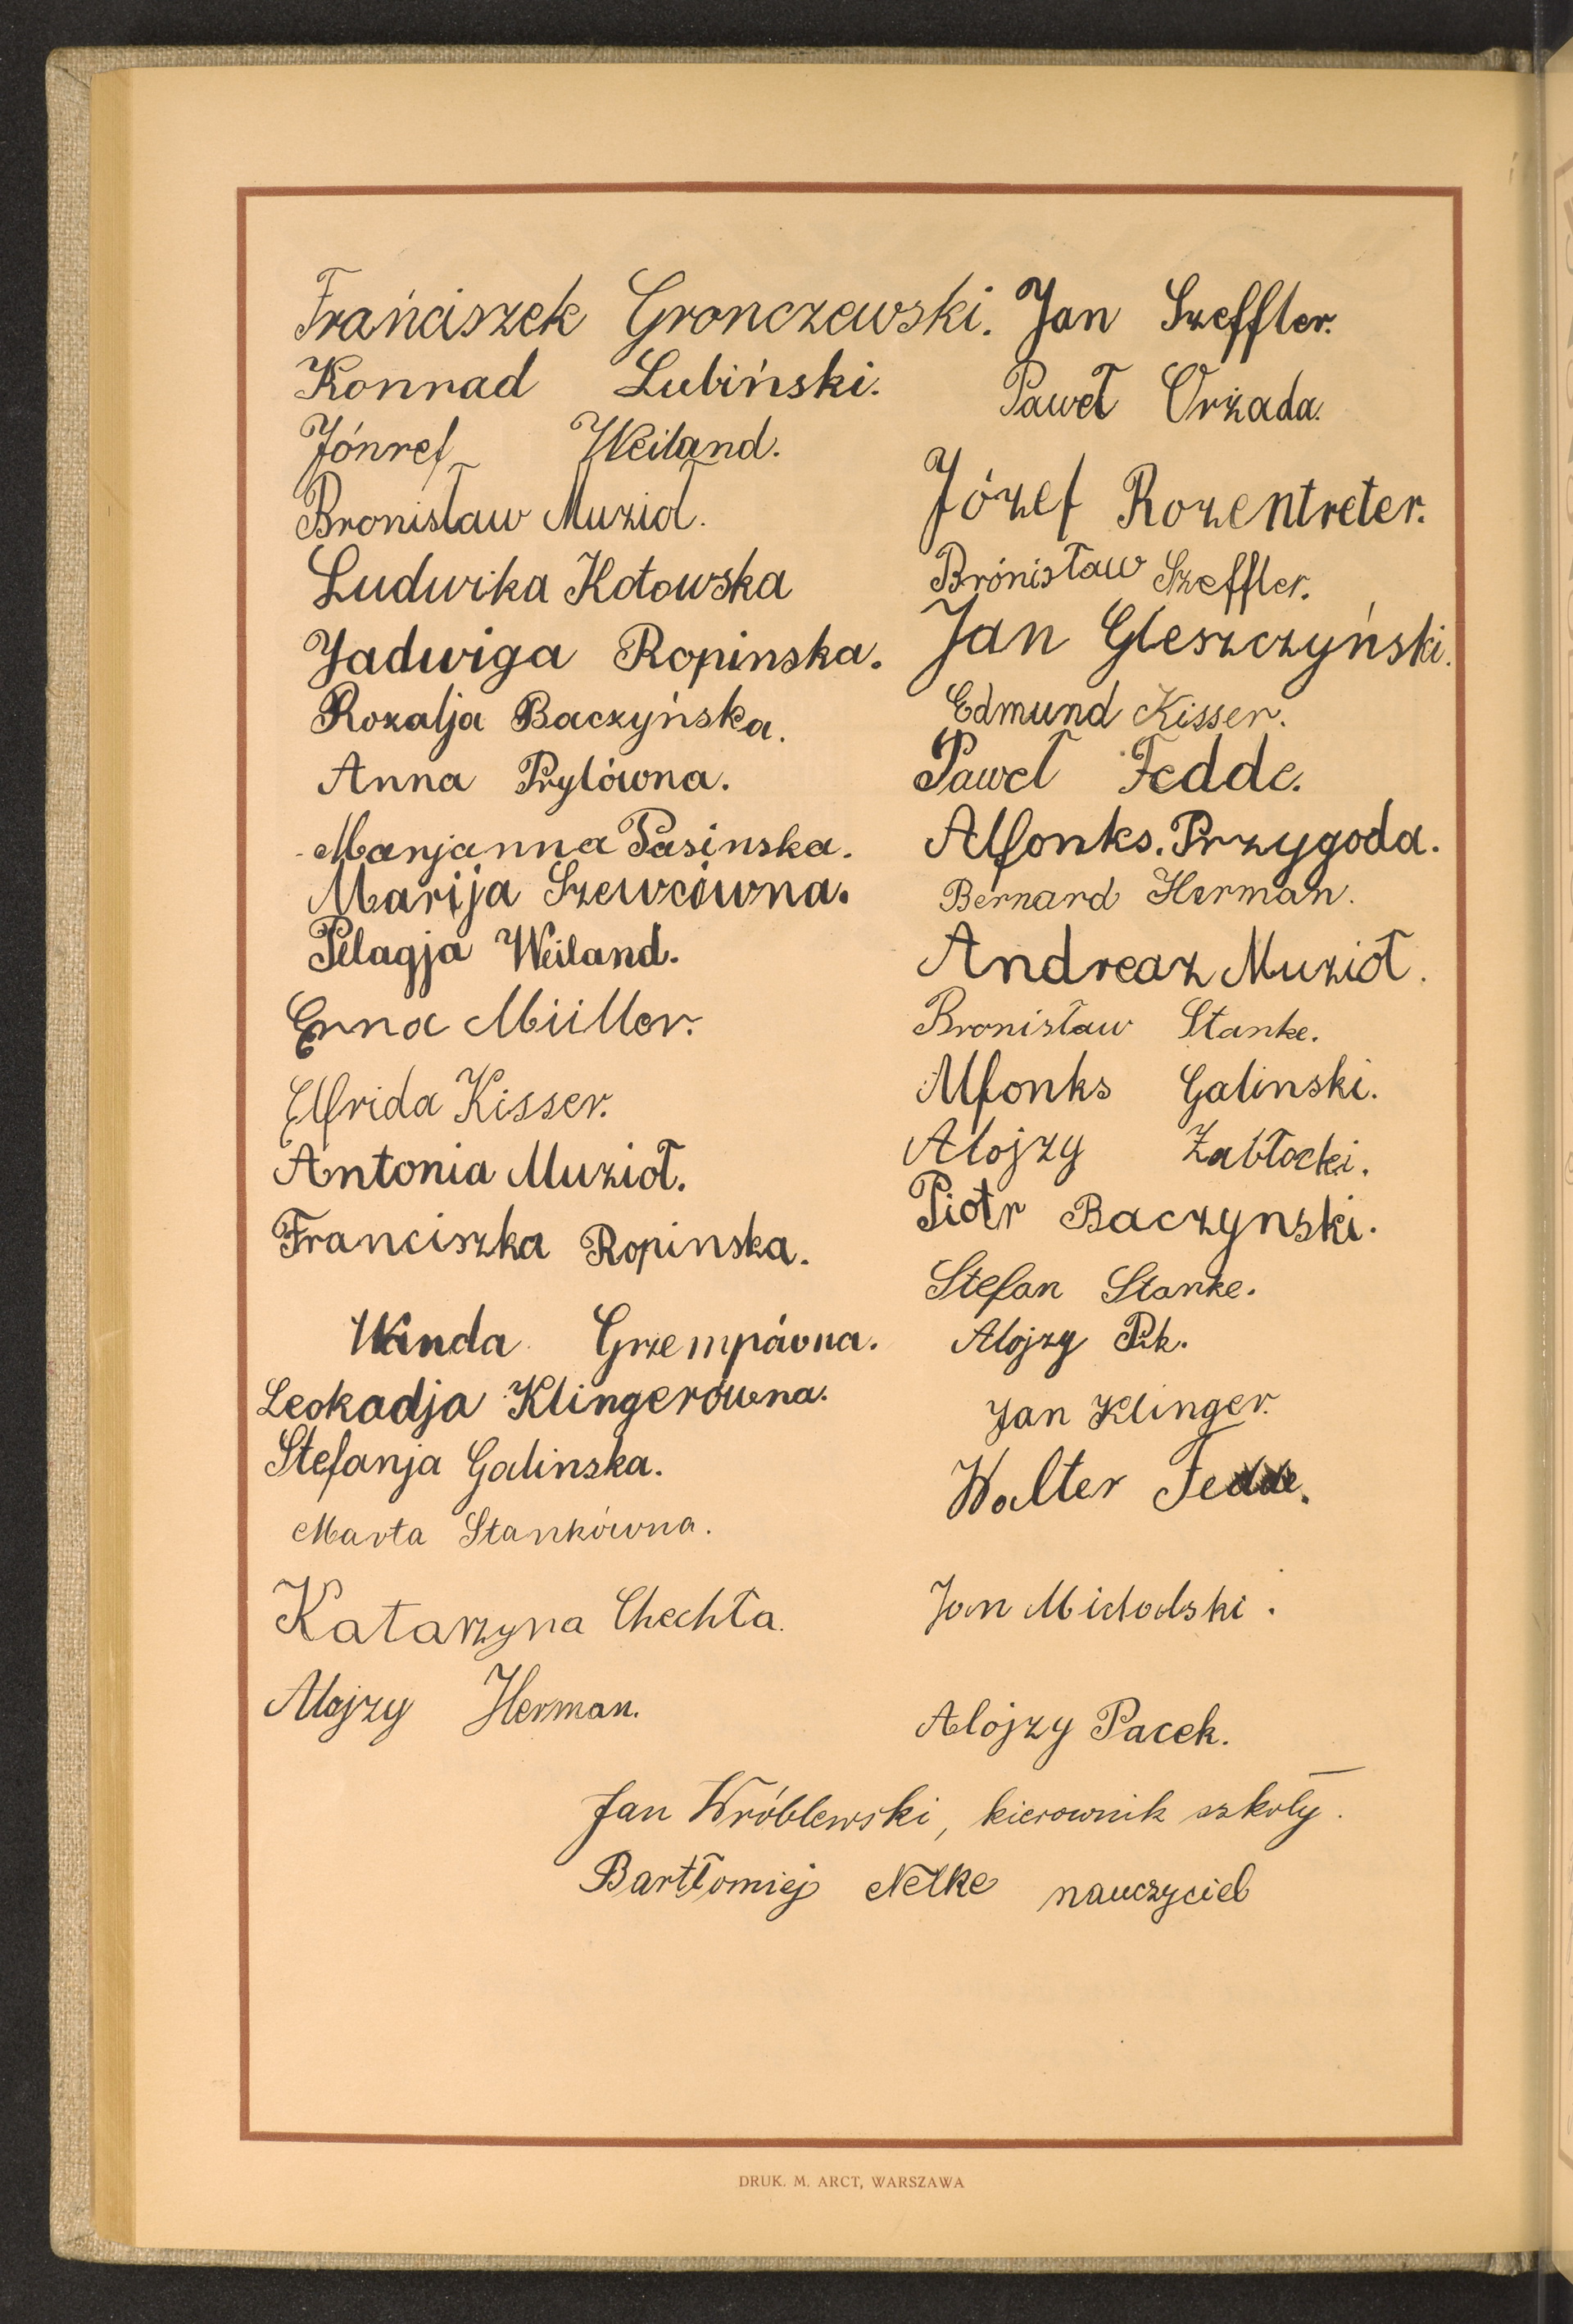 Frańciszek Gronczewski.
Konrad Lubiński.
Jónref Weiland.
Bronisław Muzioł.
Ludwika Kotowska
Jadwiga Ropinska.
Rozalja Baczyńska.
Anna Prylówna.
Marjanna Pasinska.
Marija Szewcówna.
Pelagja Weiland.
Erna Müller.
Elfrida Kisser.
Antonia Muzioł.
Franciszka Ropinska.
Wanda Grzempówna.
Leokadja Klingerówna.
Stefanja Galinska.
Marta Stankówna.
Katarzyna Chechła.
Alojzy Herman.
Jan Szeffler.
Paweł Orzada.
Józef Rozentreter.
Brónisław Szeffler.
Jan Gleszczyński.
Edmund Kisser.
Paweł Fedde.
Alfonks. Przygoda.
Bernard Herman.
Andreaz Muzioł.
Bronisław Stanke.
Alfonks Galinski.
Alojzy Zabłocki.
Piotr Baczynski.
Stefan Stanke.
Alojzy
Jan Klinger.
Walter Fedde.
Jan
Alojzy Pacek.
Jan Wróblewski, kierownik szkoły.
Bartłomiej Nelke nauczyciel
DRUK. M. ARCT, WARSZAWA